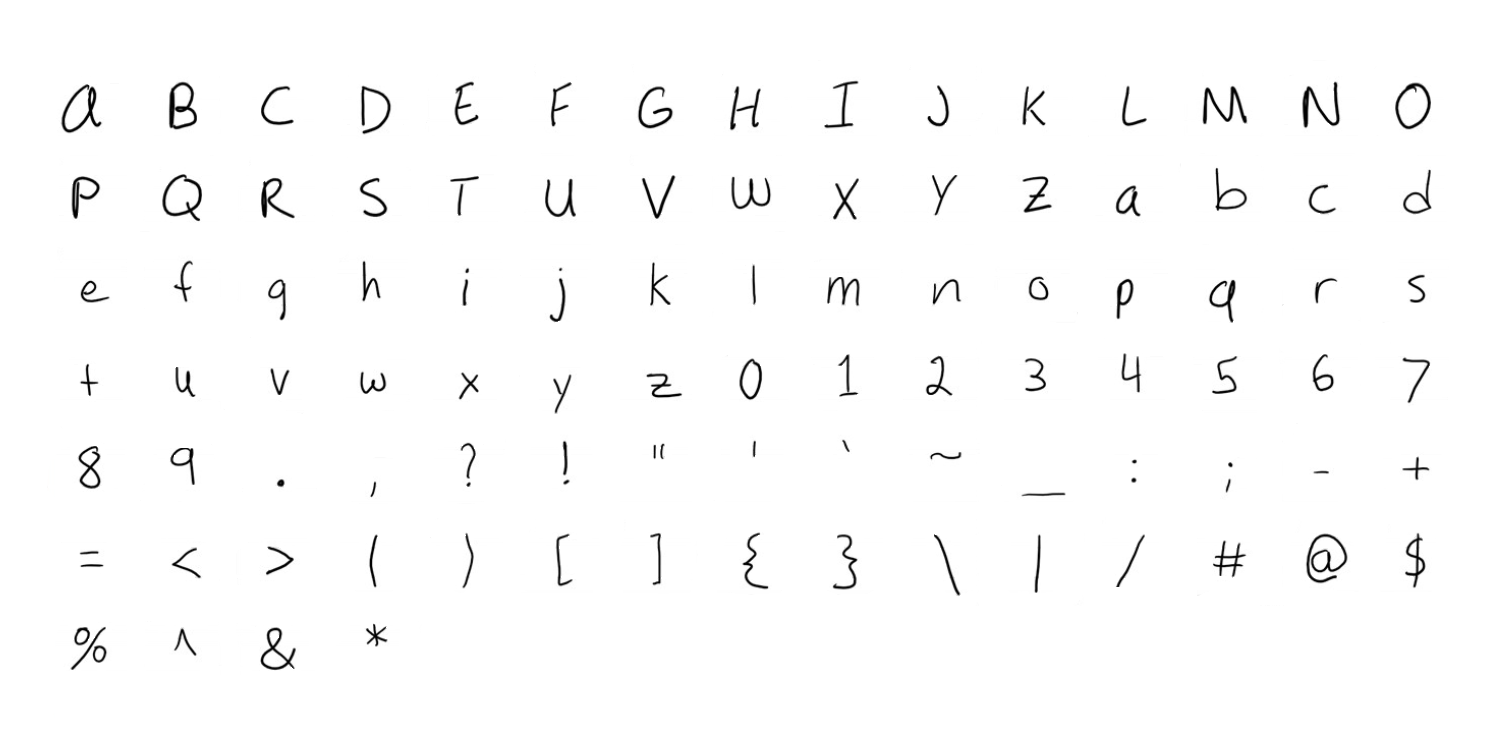 a B C D E F G H I J K L M N O
P Q R S T U V W X Y Z a b c d
e f g h i j k l m n o p q r s
t u v w x y z 0 1 2 3 4 5 6 7
8 9 . , ? ! " ' ` ~ _ : ; - +
= < > ( ) [ ] { } \ | / # @ $
% ^ & *